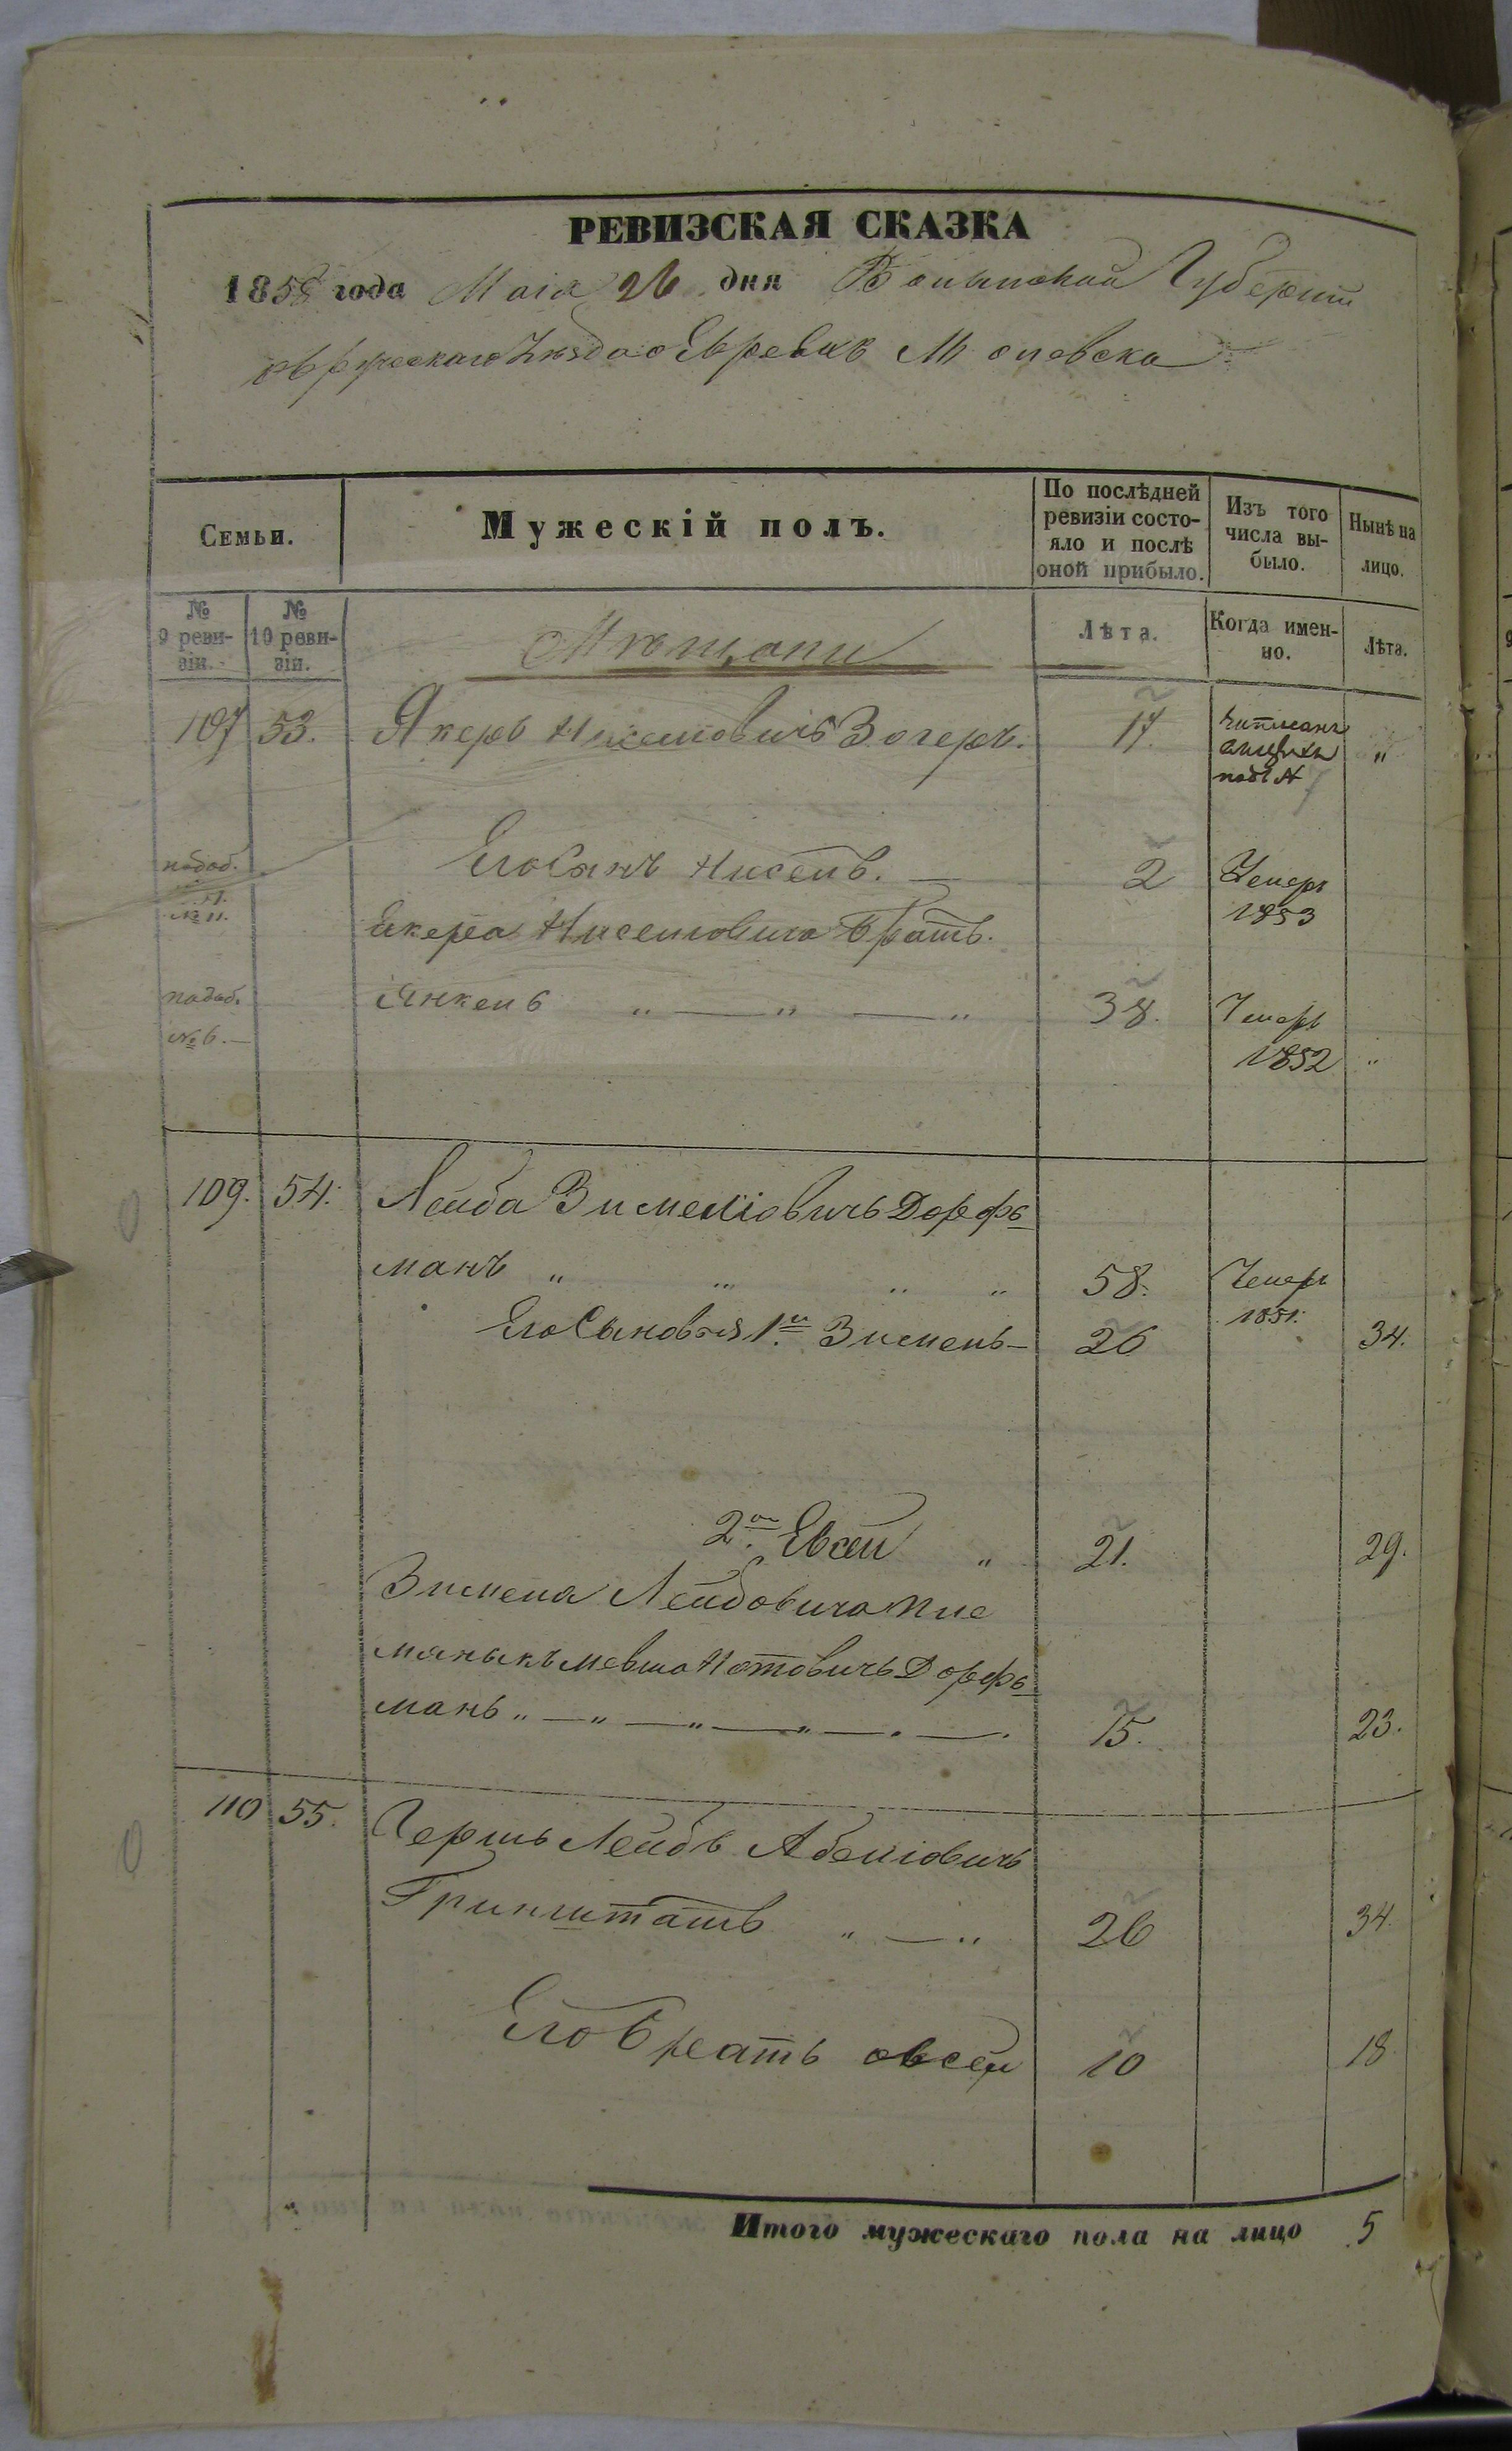 РЕВИЗСКАЯ СКАЗКА
1858 года Маія 26 дня Волынской Губерніи
Уѣзда о Евреяхъ М Олевска
Семьи.
Мужескій полъ.
По послѣдней ревизіи состо-
яло и послѣ
оной прибыло.
Изъ того
числа вы-
было.
Нынѣ на
лицо.
№
9 реви-
зіи.
№
10 реви-
зіи.
Мѣщане
Лѣта.
Когда имен-
но.
Лѣта.
107 53. Якеръ Зогеръ. 17. "
подъ №
Его Сынъ Нисель. 2 Умеръ
1853
№ 11.
Екера Ниселіовича братъ.
Янкель " — " — " 38. Умеръ
№ 6. — 1852 "
109. 54. Лейба Зимеліовичъ Дорфъ
манъ " " " " 58. Умеръ
1851.
Его Сыновья 1й Зимель — 26 34.
2й Евсей " 21. 29.
Зимеля Лейбовича пле
мяныкъ Мевша Нотовичъ Дорфъ
манъ " — " — " — " — " — 15. 23.
110 55. Гершъ Лейбъ Абеліовичъ
Гринштатъ " — " 26 34.
Его Братъ Овсей 10 18
Итого мужескаго пола на лицо 5